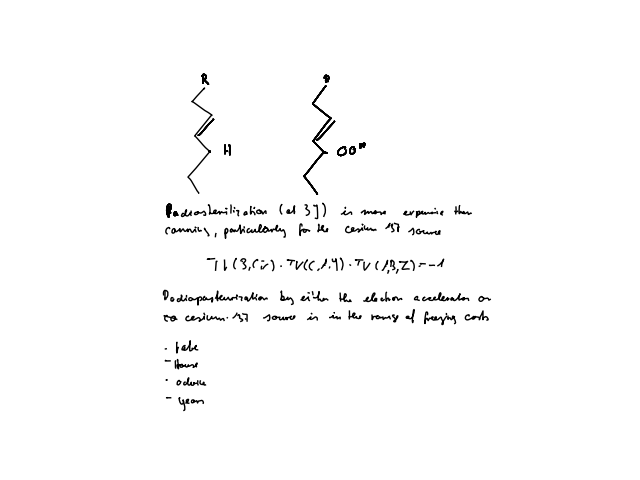 R
H
OO
Radiosterilization (at 3]) is more expensive than
canning, particularly for the cesium 137 source
(C,1,Y) · TV (1,B,Z) = -1
by either the electron accelerator or
cesium-137 source is in the range of freezing costs
- House
· advice
- years